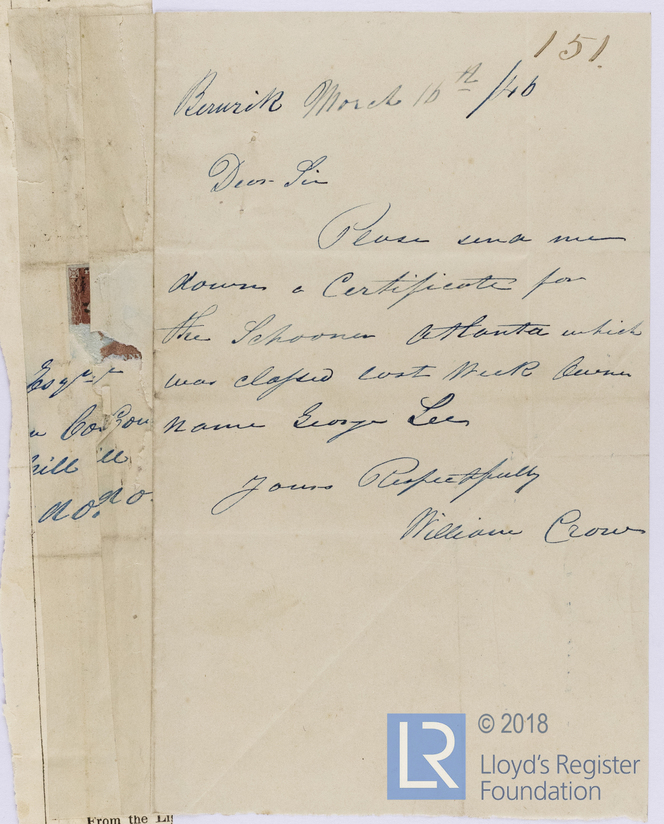 151.
Berwick March 16th /46
Dear Sir
Please send me
down a Certificate for
the Schooner Atlanta which
was classed last Week Owner
name George Lee
Yours Respectfully
William Crow
Esqr
Co
hill ill
do. do.
From the
LR
© 2018
Lloyd's Register
Foundation